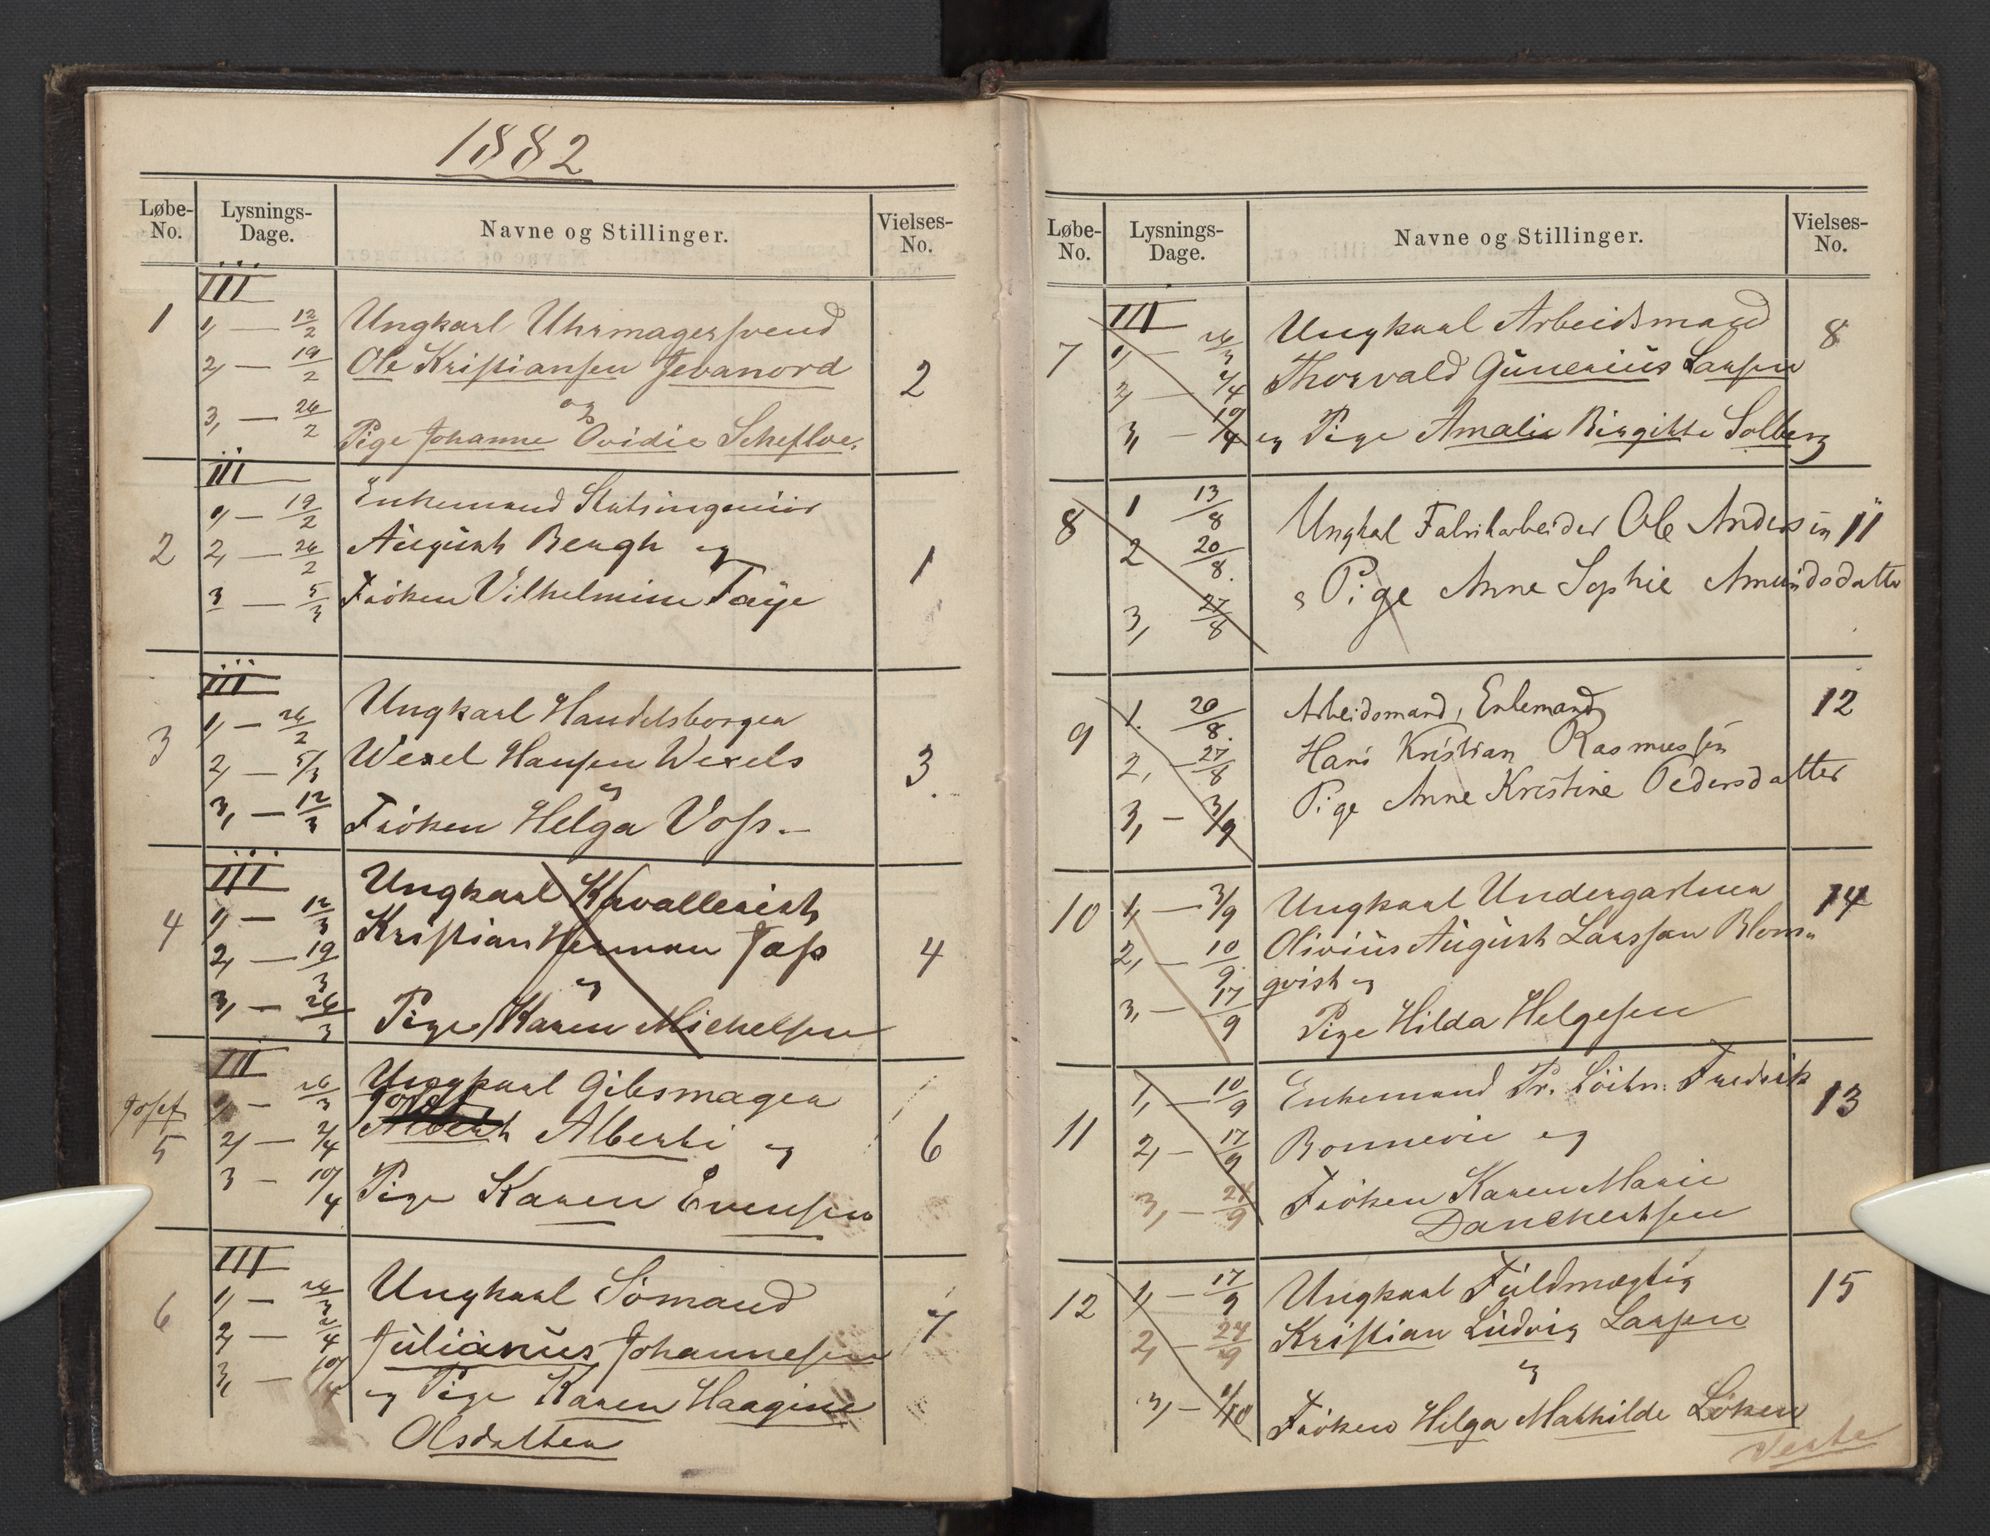 1882
Løbe-No. Lysnings-Dage. Navne og Stillinger. Vielses-No.
III
1 1, — 12/2 Ungkarl Uhrmagersvend
2, — 19/2 Ole Kristiansen Jevanord 2
3, — 26/2 og
Pige Johanne Ovidie Schefloe.
III
1, — 19/2 Enkemand Statsingeniör
2 2, — 26/2 August Bergh og 1
3 — 5/3 Fröken Vilhelmine Faye
III
1, — 26/2 Ungkarl Handelsborger
3 2, — 5/3 Wexel Hansen Wexels 3.
og
3, — 12/3 Fröken Helga Voss. —
III
4 1, — 12/3 Ungkarl Kavallerist
2, — 19/3 Kristian Herman Jæss 4
og
3, — 26/3 Pige Karen Michelsen
III
1, — 26/3 Ungkarl Gibsmager
Josef
5 2, — 2/4 Josef Albert Alberti og 6
3 — 10/4 Pige Karen Evensen
III
6 1, — 26/3 Ungkarl Sömand
2, — 2/4 Julianus Johannesen 7
3, — 10/4 og Pige Karen Haagine
Olsdatter
Løbe-No. Lysnings-Dage. Navne og Stillinger. Vielses-No.
III
7 1, — 26/3 Ungkarl Arbeidsmand 8
2, — 2/4 Thorvald Gunerius Larsen
3, — 10/4 og Pige Amalie Birgitte Solberg
8 1 13/8 Ungkal Fabrikarbeider Ole Andersen 11
2 20/8. og Pige Anne Sophie Amundsdatter
3, 27/8
9 1. 20/8. Arbeidsmand, Enkemand 12
2, — 27/8 Hans Kristian Rasmussen
3, — 3/9 Pige Anne Kristine Pedersdatter
10 1, — 3/9 Ungkarl Undergartner 14
2, — 10/9. Olivius August Larsson Blom-
qvist og
3, — 17/9 Pige Hilda Helgesen
1, — 10/9 Enkemand Pr. Löitn. Fredrik 13
11 2, — 17/9 Bonnevie og
3, — 24/9 Fröken Karen Marie
Danchertsen
12 1, — 17/9 Ungkarl Fuldmægtig 15
2, — 24/9 Kristian Ludvig Larsen
og
3, — 1/10 Fröken Helga Mathilde Löken
Verte